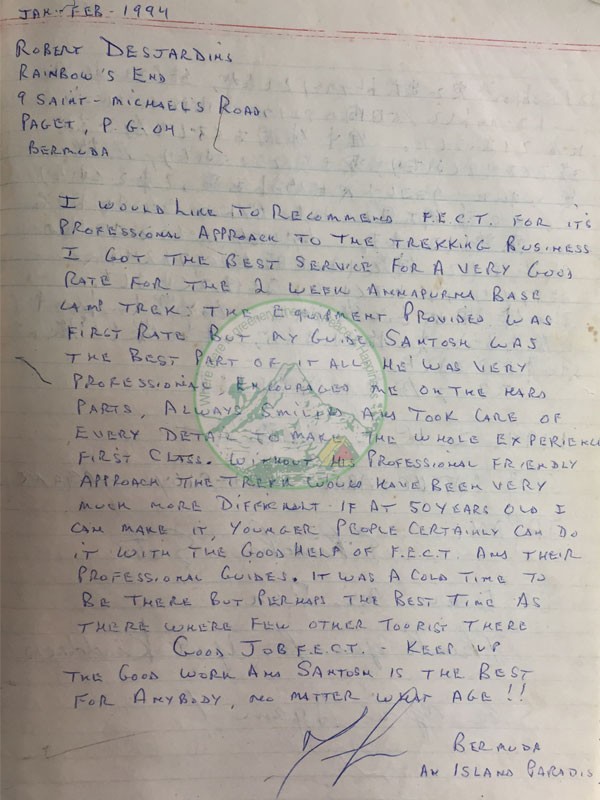 JAN-FEB-1994
ROBERT DESJARDINS
RAINBOW'S END
9 SAINT-MICHAELS ROAD.
PAGET, P.G. 04
BERMUDA
I WOULD LIKE TO RECOMMEND F.E.C.T. FOR IT'S
PROFESSIONAL APPROACH TO THE TREKKING BUSINESS
I GOT THE BEST SERVICE FOR A VERY GOOD
RATE FOR THE 2 WEEK ANNAPURNA BASE
CAMP TREK. THE EQUIPMENT PROVIDED WAS
FIRST RATE BUT MY GUIDE SANTOSH WAS
THE BEST PART OF IT ALL HE WAS VERY
PROFESSIONAL, ENCOURAGED ME ON THE HARD
PARTS, ALWAYS SMILED AND TOOK CARE OF
EVERY DETAIL TO MAKE THE WHOLE EXPERIENCE
FIRST CLASS. WITHOUT HIS PROFESSIONAL FRIENDLY
APPROACH THE TREKK WOULD HAVE BEEN VERY
MUCH MORE DIFFICULT IF AT 50 YEARS OLD I
CAN MAKE IT, YOUNGER PEOPLE CERTAINLY CAN DO
IT WITH THE GOOD HELP OF F.E.C.T. AND THEIR
PROFESSIONAL GUIDES. IT WAS A COLD TIME TO
BE THERE BUT PERHAPS THE BEST TIME AS
THERE WHERE FEW OTHER TOORIST THERE
GOOD JOB F.E.C.T. - KEEP UP
THE GOOD WORK AND SANTOSH IS THE BEST
FOR ANYBODY, NO MATTER WHAT AGE !!
BERMUDA
AN ISLAND PARADIS